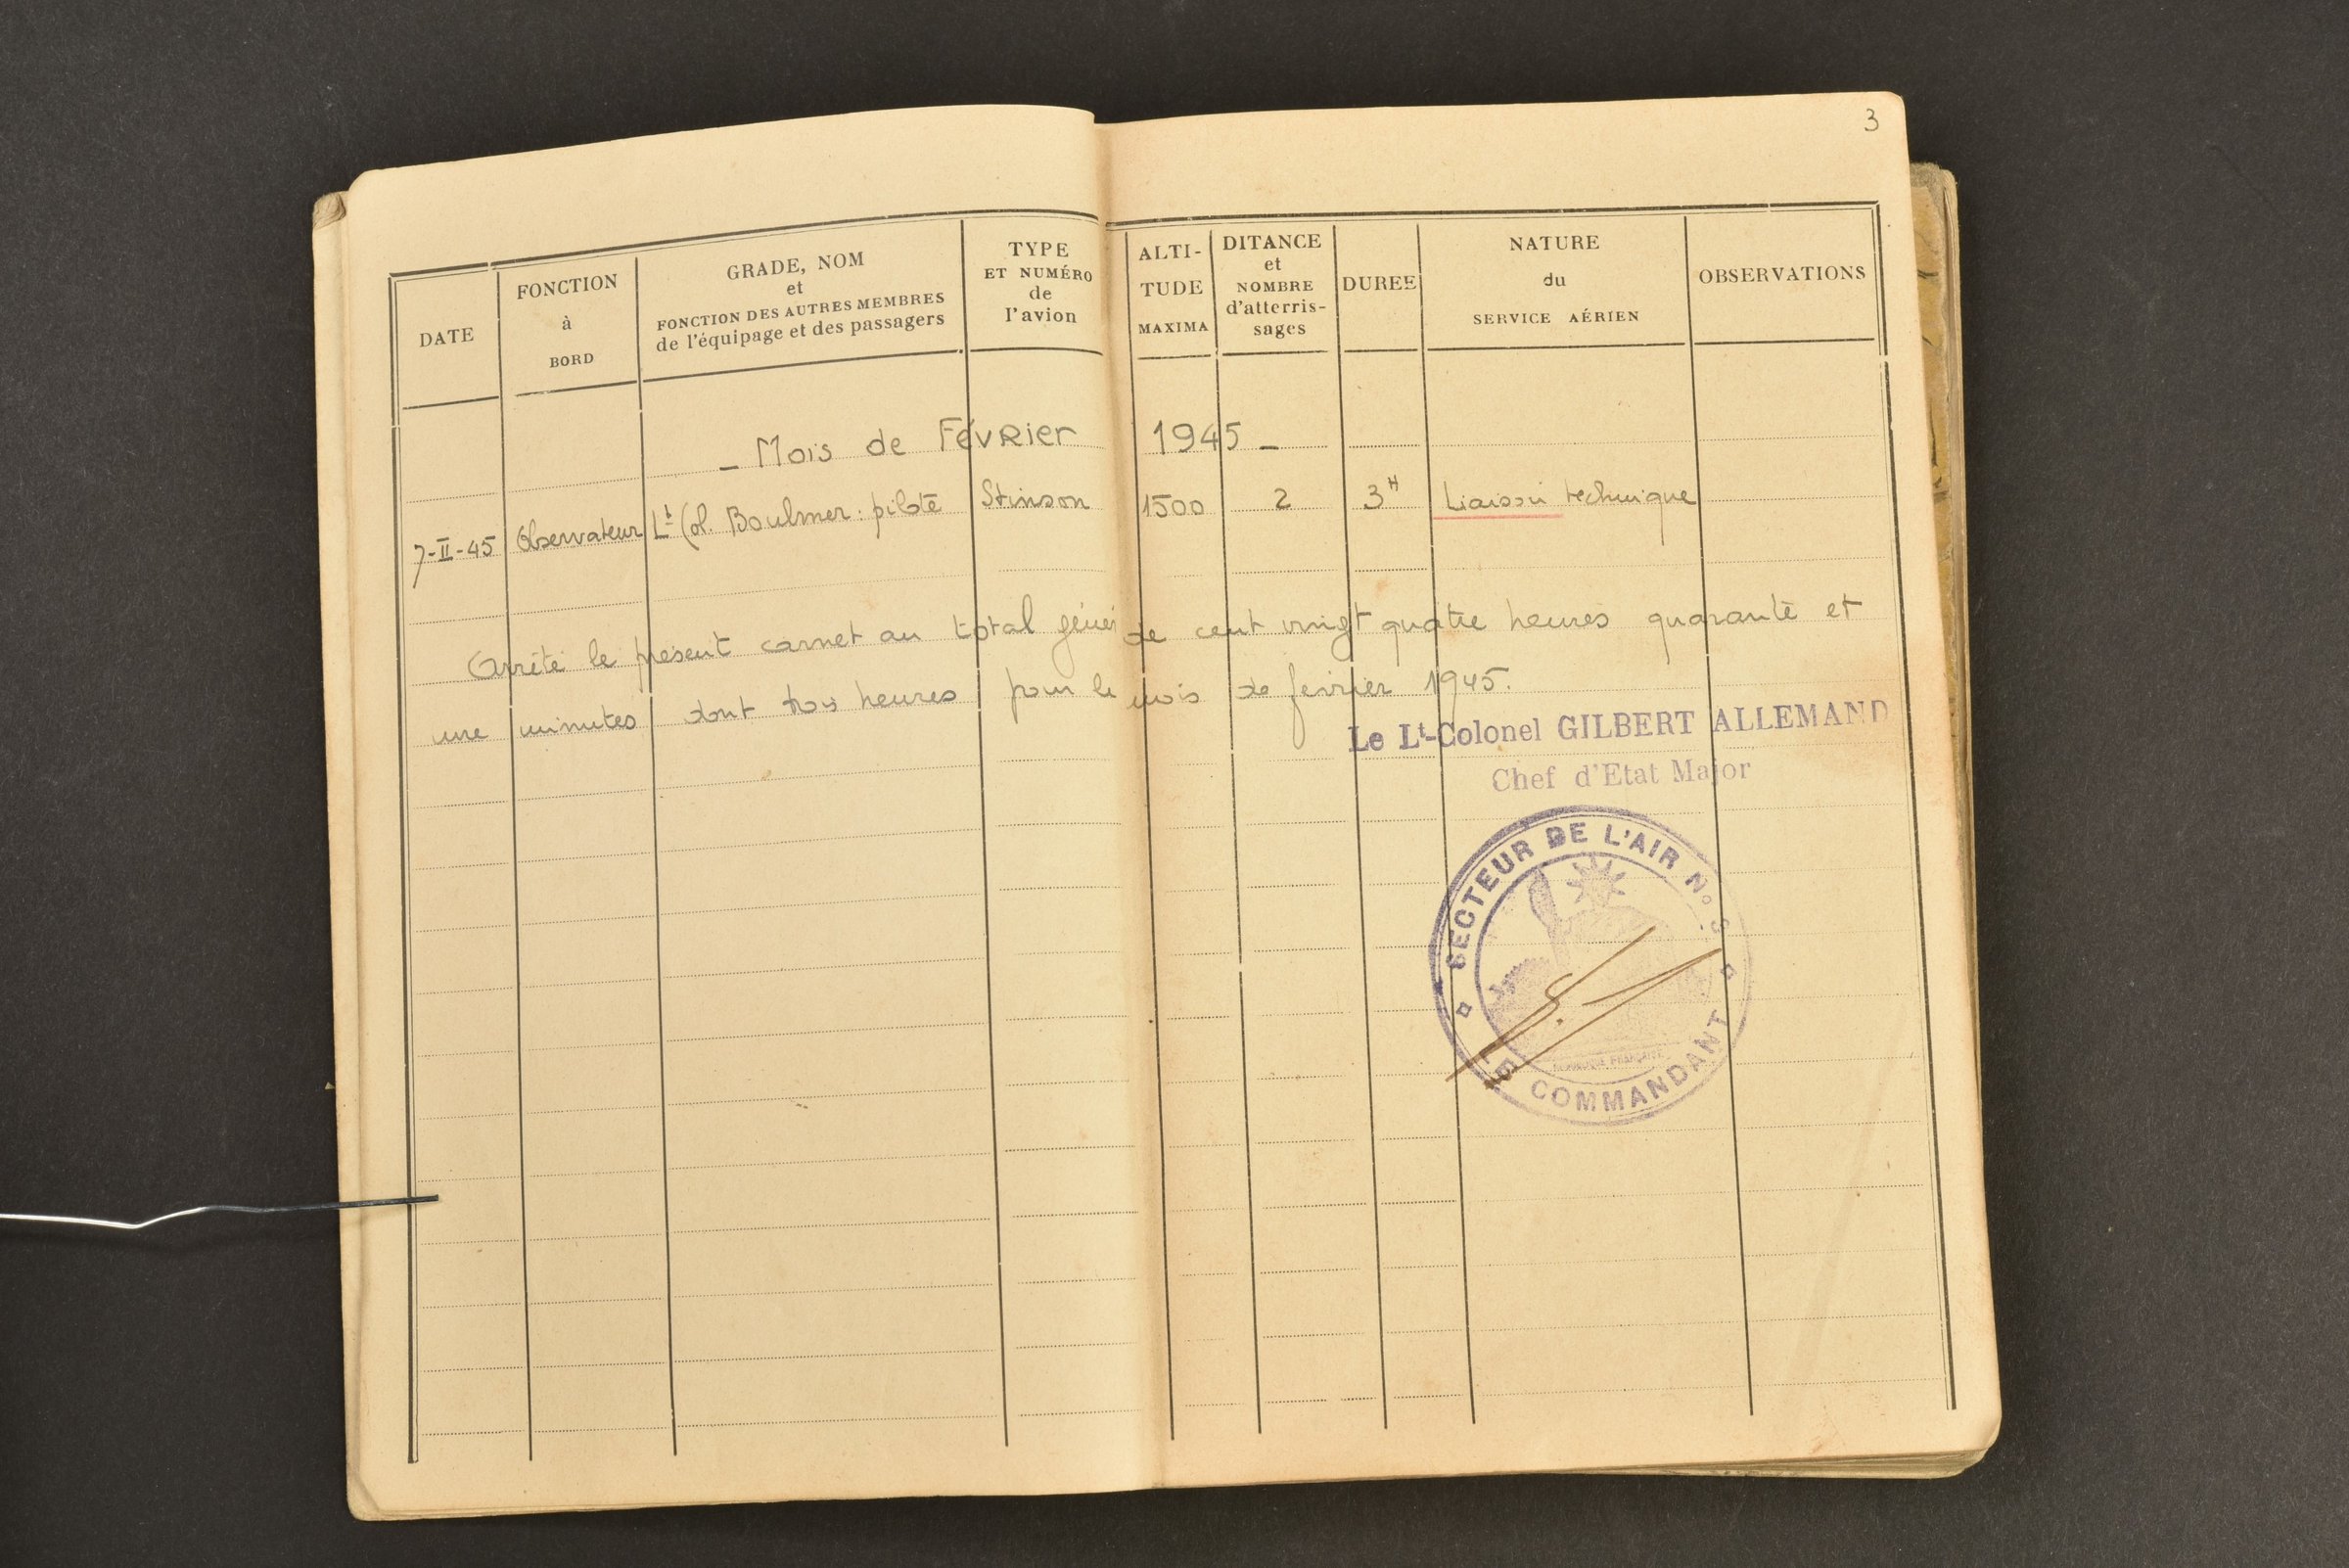 3
DATE
FONCTION
à
BORD
GRADE, NOM
et
FONCTION DES AUTRES MEMBRES
de l'équipage et des passagers
TYPE
ET NUMÉRO
de
l'avion
ALTI-
TUDE
MAXIMA
DITANCE
et
NOMBRE
d'atterris-
sages
DUREE
NATURE
du
SERVICE AÉRIEN
OBSERVATIONS
- Mois de Février 1945 -
7-II-45 Observateur Lt Col. Boulmer : pilote Stinson 1500 2 3H Liaison technique
Arrêté le présent carnet au total génér de cent vingt quatre heures quarante et
une minutes dont trois heures pour le mois de février 1945.
Le Lt-Colonel GILBERT ALLEMAND
Chef d'Etat Major
SECTEUR DE L'AIR No
LE COMMANDANT